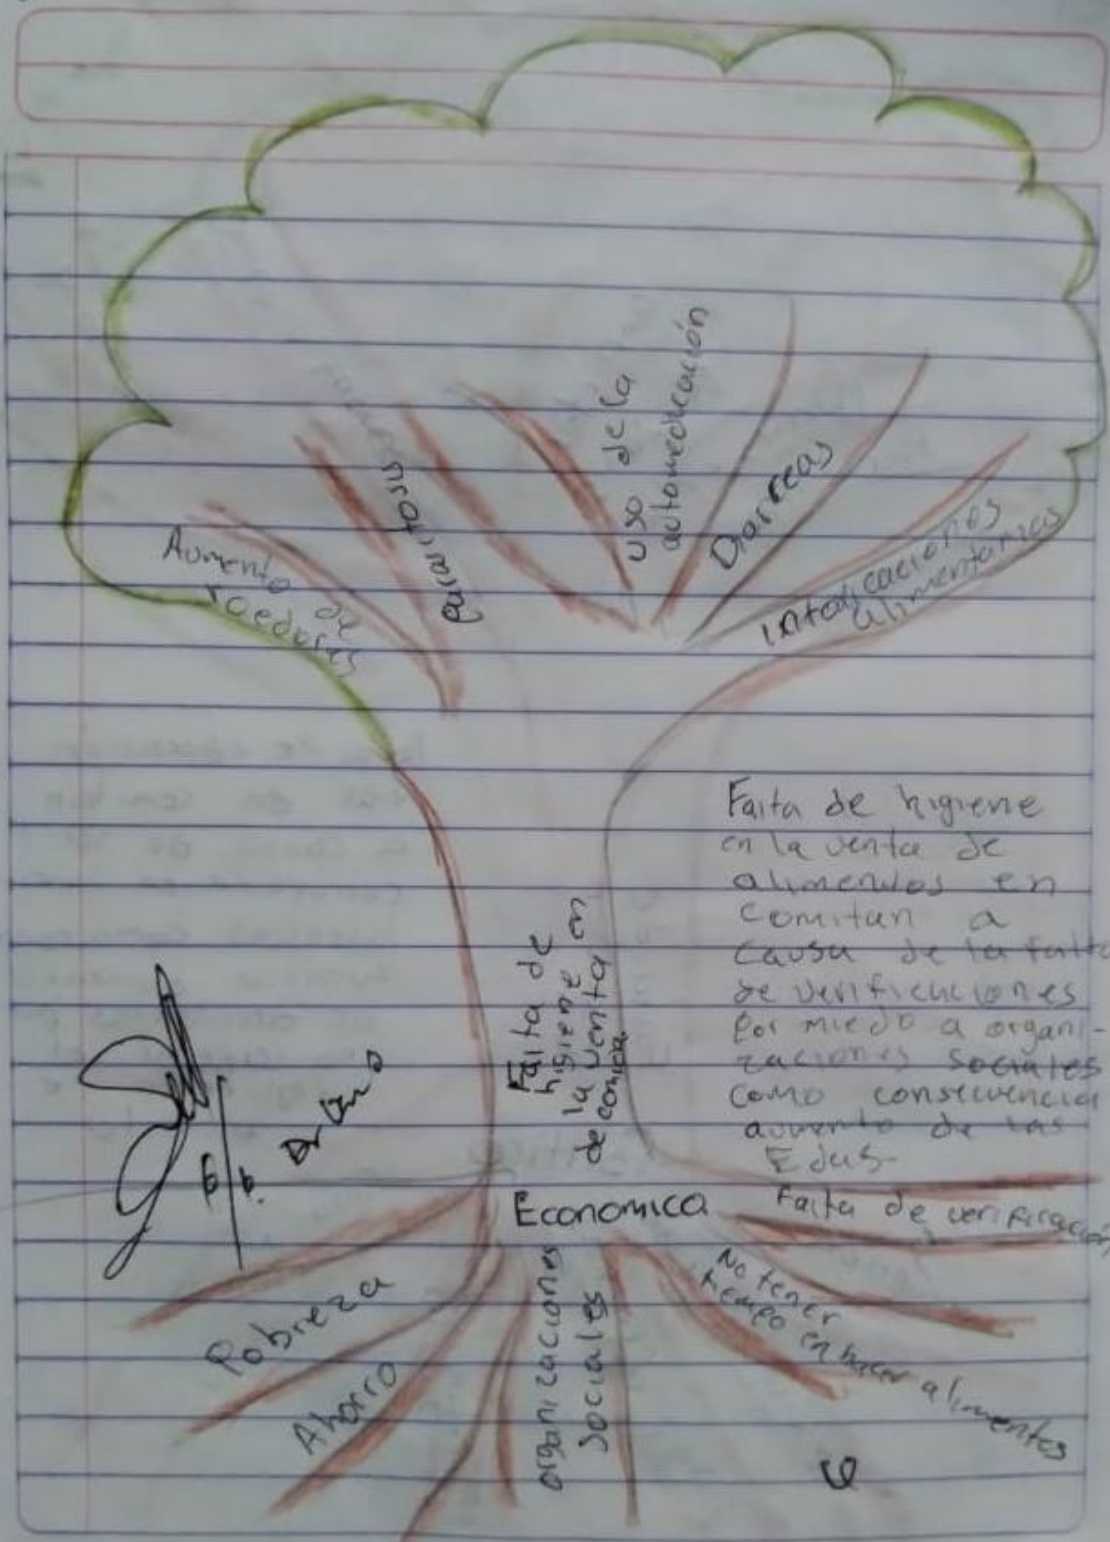 Aumento de
roedores
Parasitosis
uso de la
automedicación
Diarreas
Intoxicaciones
alimentarias
Falta de higiene
en la venta de
alimentos en
Comitan a
causa de la falta
de verificaciones
Por miedo a organi-
zaciones sociales
como consecuencia
aumento de las
Edas.
Falta de
higiene
la venta en
de comida.
Economica
Falta de verificación
No tener
tiempo en hacer alimentos
organizaciones
sociales
Ahorro
Pobreza